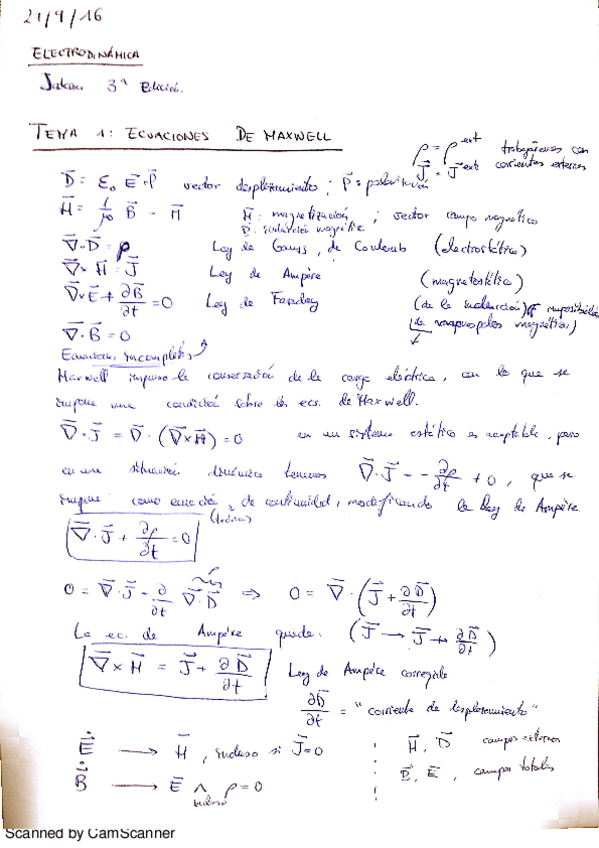 21/9/16
ELECTRODINÁMICA
3ª Edición.
TEMA 1: ECUACIONES DE MAXWELL
ρ = ρ^ext trabajaremos con
J⃗ = J⃗^ext corrientes externas
D⃗ = ε₀ E⃗ + P⃗ vector desplazamiento ; P⃗ = polarización
H⃗ = 1/μ₀ B⃗ - M⃗ M⃗: magnetización ; vector campo magnético
B⃗: inducción magnética
∇⃗·D⃗ = ρ Ley de Gauss, de Coulomb (electrostática)
∇⃗×H⃗ = J⃗ Ley de Ampère (magnetostática)
∇⃗×E⃗ + ∂B⃗/∂t = 0 Ley de Faraday (de la inducción)
∇⃗·B⃗ = 0 (de monopolos magnéticos)
Ecuaciones incompletas
Maxwell impuso la conservación de la carga eléctrica, con lo que se
impone una condición sobre las ecs. de Maxwell.
∇⃗·J⃗ = ∇⃗·(∇⃗×H⃗) = 0 en un sistema estático es aceptable, pero
en una situación dinámica tenemos ∇⃗·J⃗ = -∂ρ/∂t ≠ 0, que se
impone como ecuación de continuidad, modificando la Ley de Ampère
∇⃗·J⃗ + ∂ρ/∂t = 0
0 = ∇⃗·J⃗ + ∂/∂t ∇⃗·D⃗ ⇒ 0 = ∇⃗·(J⃗ + ∂D⃗/∂t)
La ec. de Ampère queda: (J⃗ → J⃗ + ∂D⃗/∂t)
∇⃗×H⃗ = J⃗ + ∂D⃗/∂t Ley de Ampère corregida
∂D⃗/∂t = "corriente de desplazamiento"
E⃗ → H⃗, incluso si J⃗ = 0 H⃗, D⃗ campos externos
B⃗ → E⃗ incluso ρ = 0 B⃗, E⃗, campos totales
Scanned by CamScanner